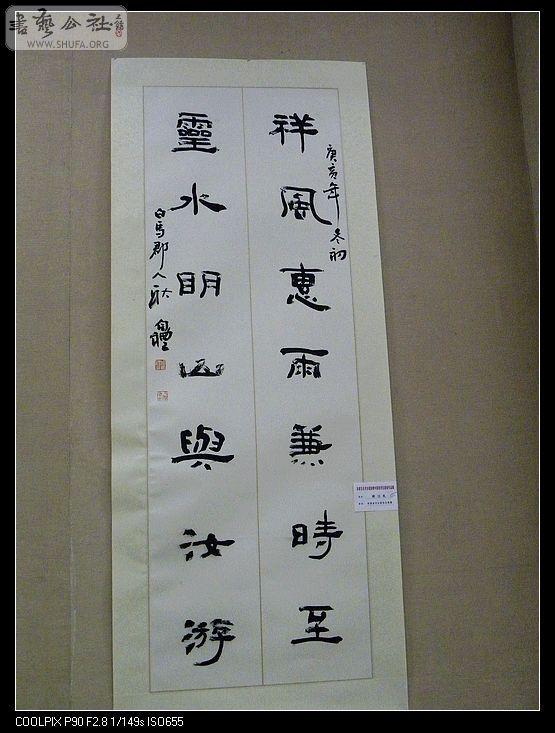 書藝公社
WWW.SHUFA.ORG
祥風惠雨兼時至
庚寅年冬初
靈水明山與汝游
白馬郡人耿
COOLPIX P90 F2.8 1/149s ISO655